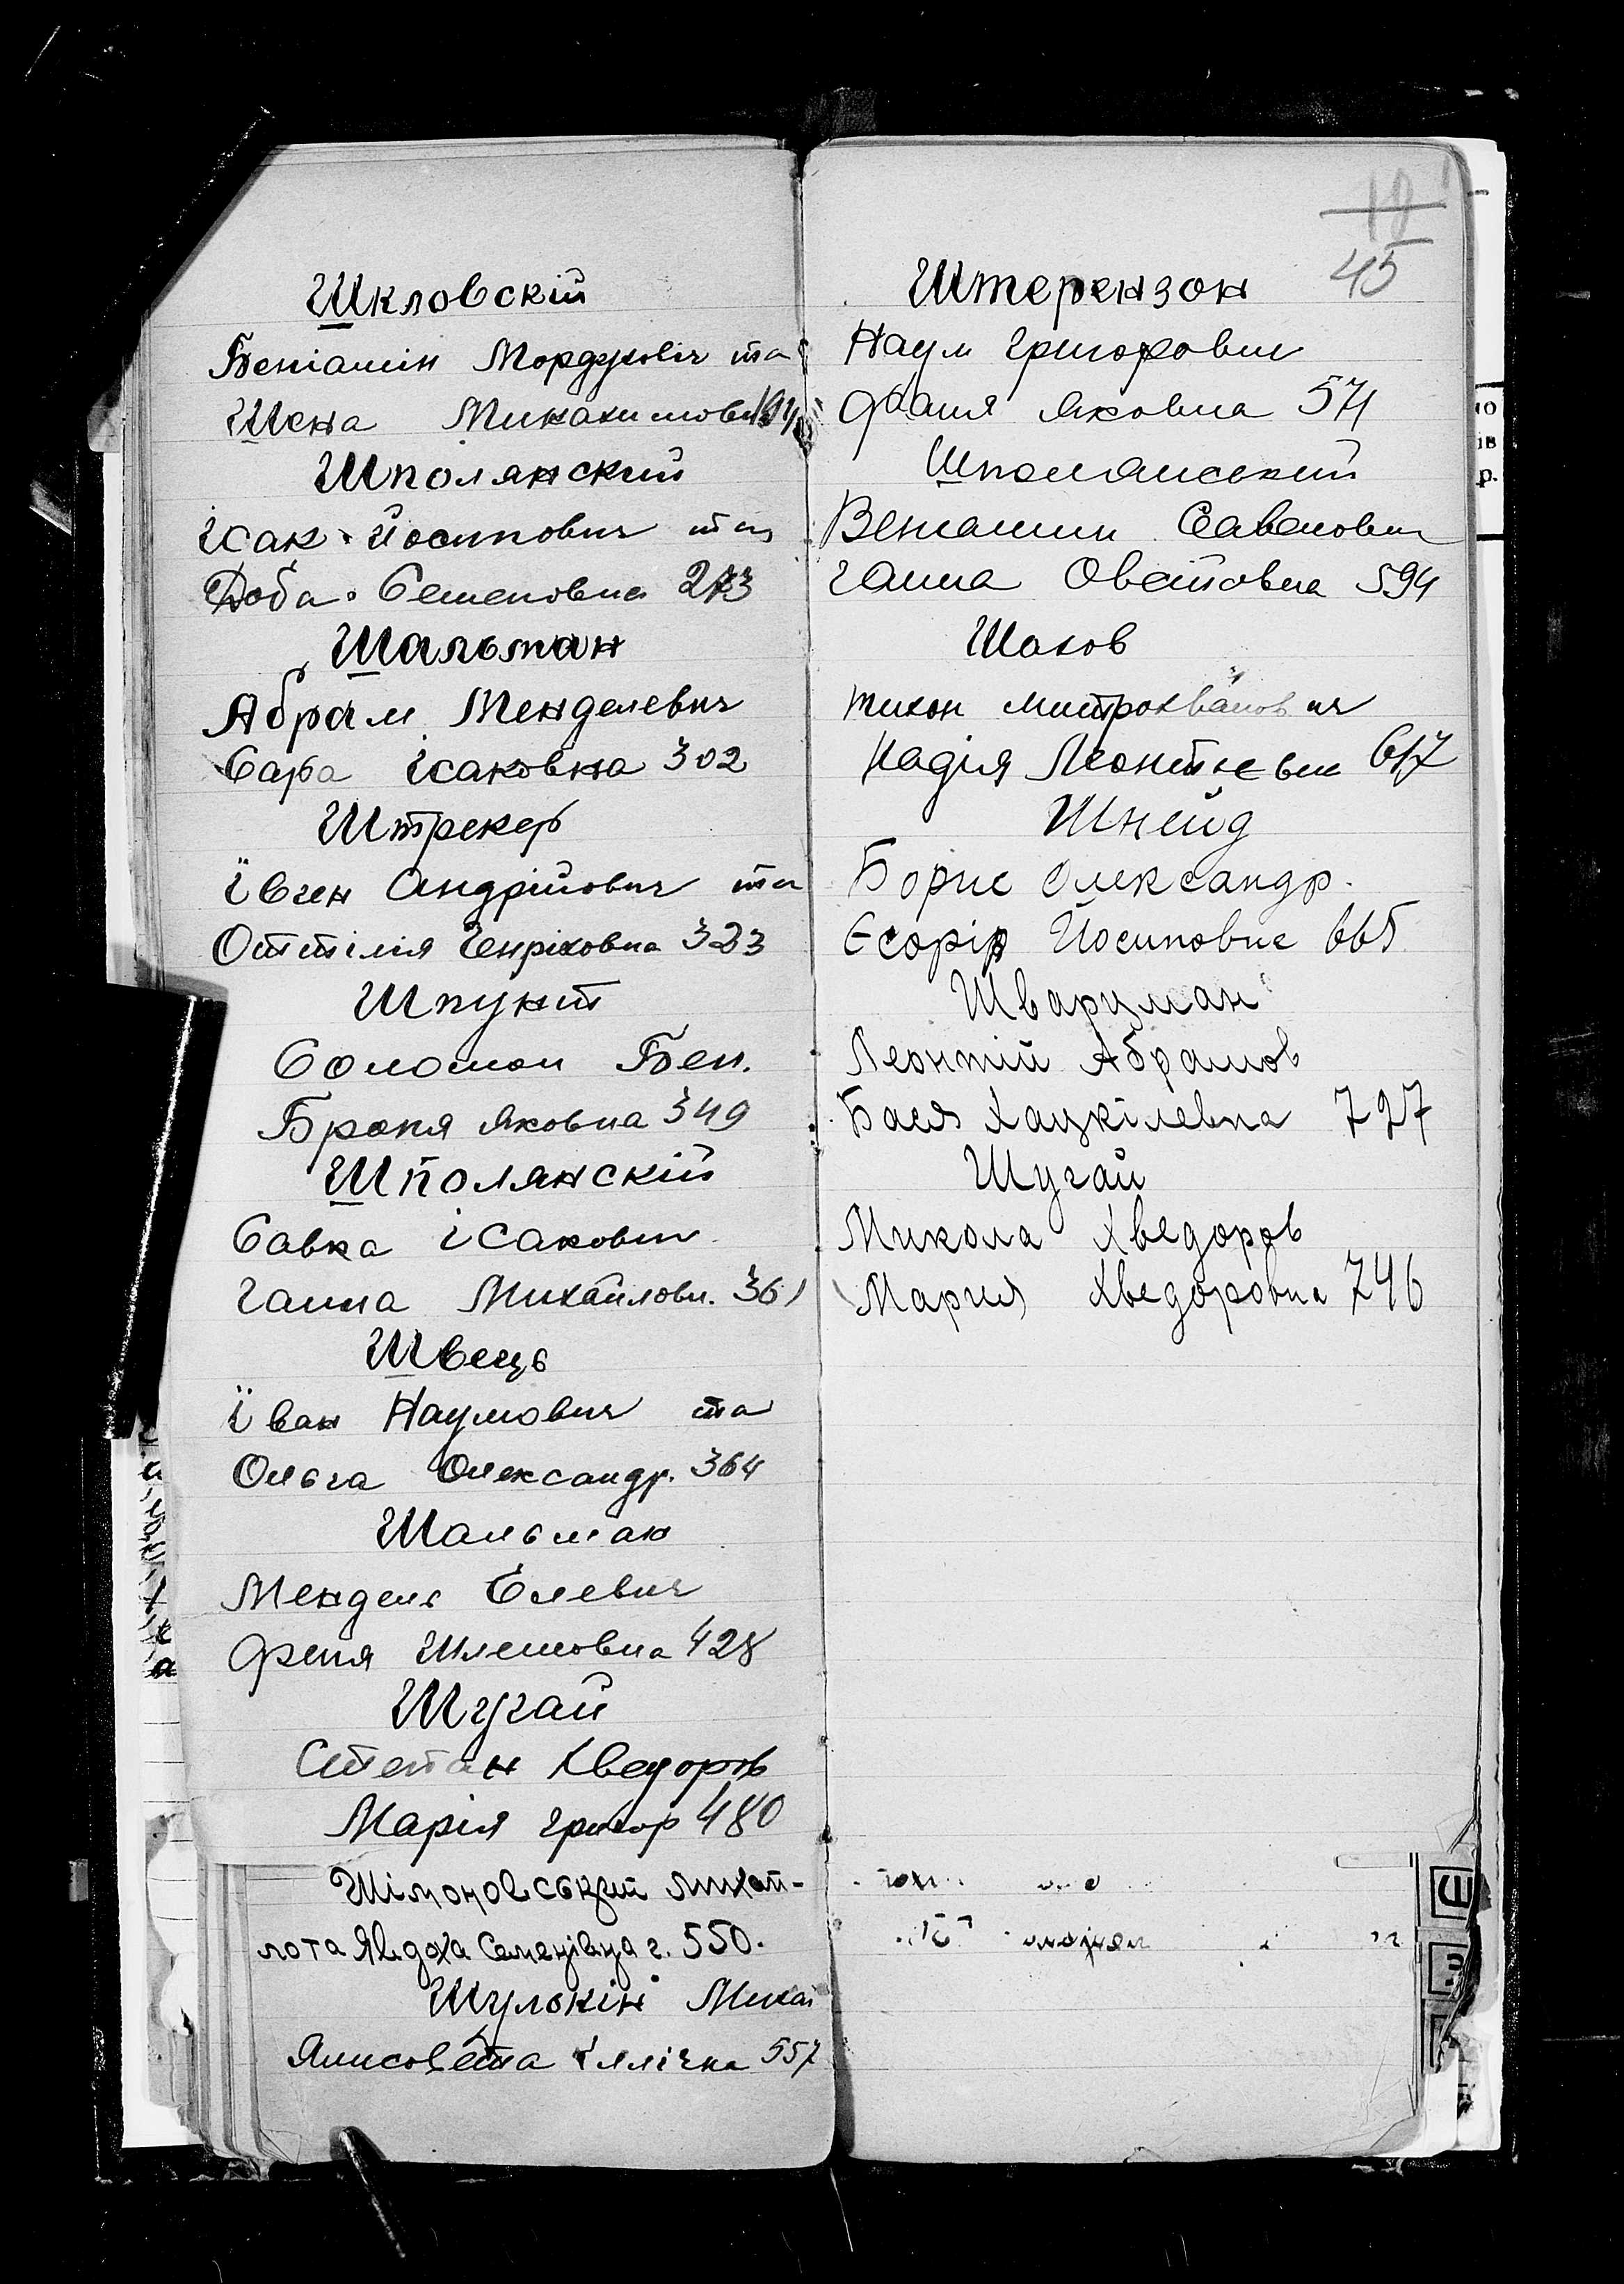 Шкловскій
Беніамін Мордухович та
Шена
Шполянский
Ісак Йосипович та
Доба Семеновна 273
Шальман
Абрам Менделевич
Сара Ісаковна 302
Штрекер
Ївген Андрійович та
Оттілія Генріховна 323
Шпунт
Соломон Бен.
Броня Яковна 349
Шполянскій
Савка Ісакович
Ганна Михайловн. 361
Швець
Їван Наумович та
Ольга Олександр. 364
Шальман
Мендель Елевич
Феня Шлемовна 428
Шугай
Степан Хведоров
Марія Григор 480
Шімоновський Михай-
ло та Явдоха Семенівна 2. 550.
Шулькін Михай
Єлисовета Іллічна 557
18
45
Штерензон
Наум Григорович
Фаня Яковна 571
Шполянський
Веніамин Савелович
Ганна Овсіовна 594
Шахов
Тихон Митрохванович
Надія Леонтієвна 617
Шнейд
Борис Олександр.
Йосиповна 665
Шварцман
Леонтій Абрамов
Бася Хацкілевна 727
Шугай
Микола Хведоров
Мария Хведоровна 746